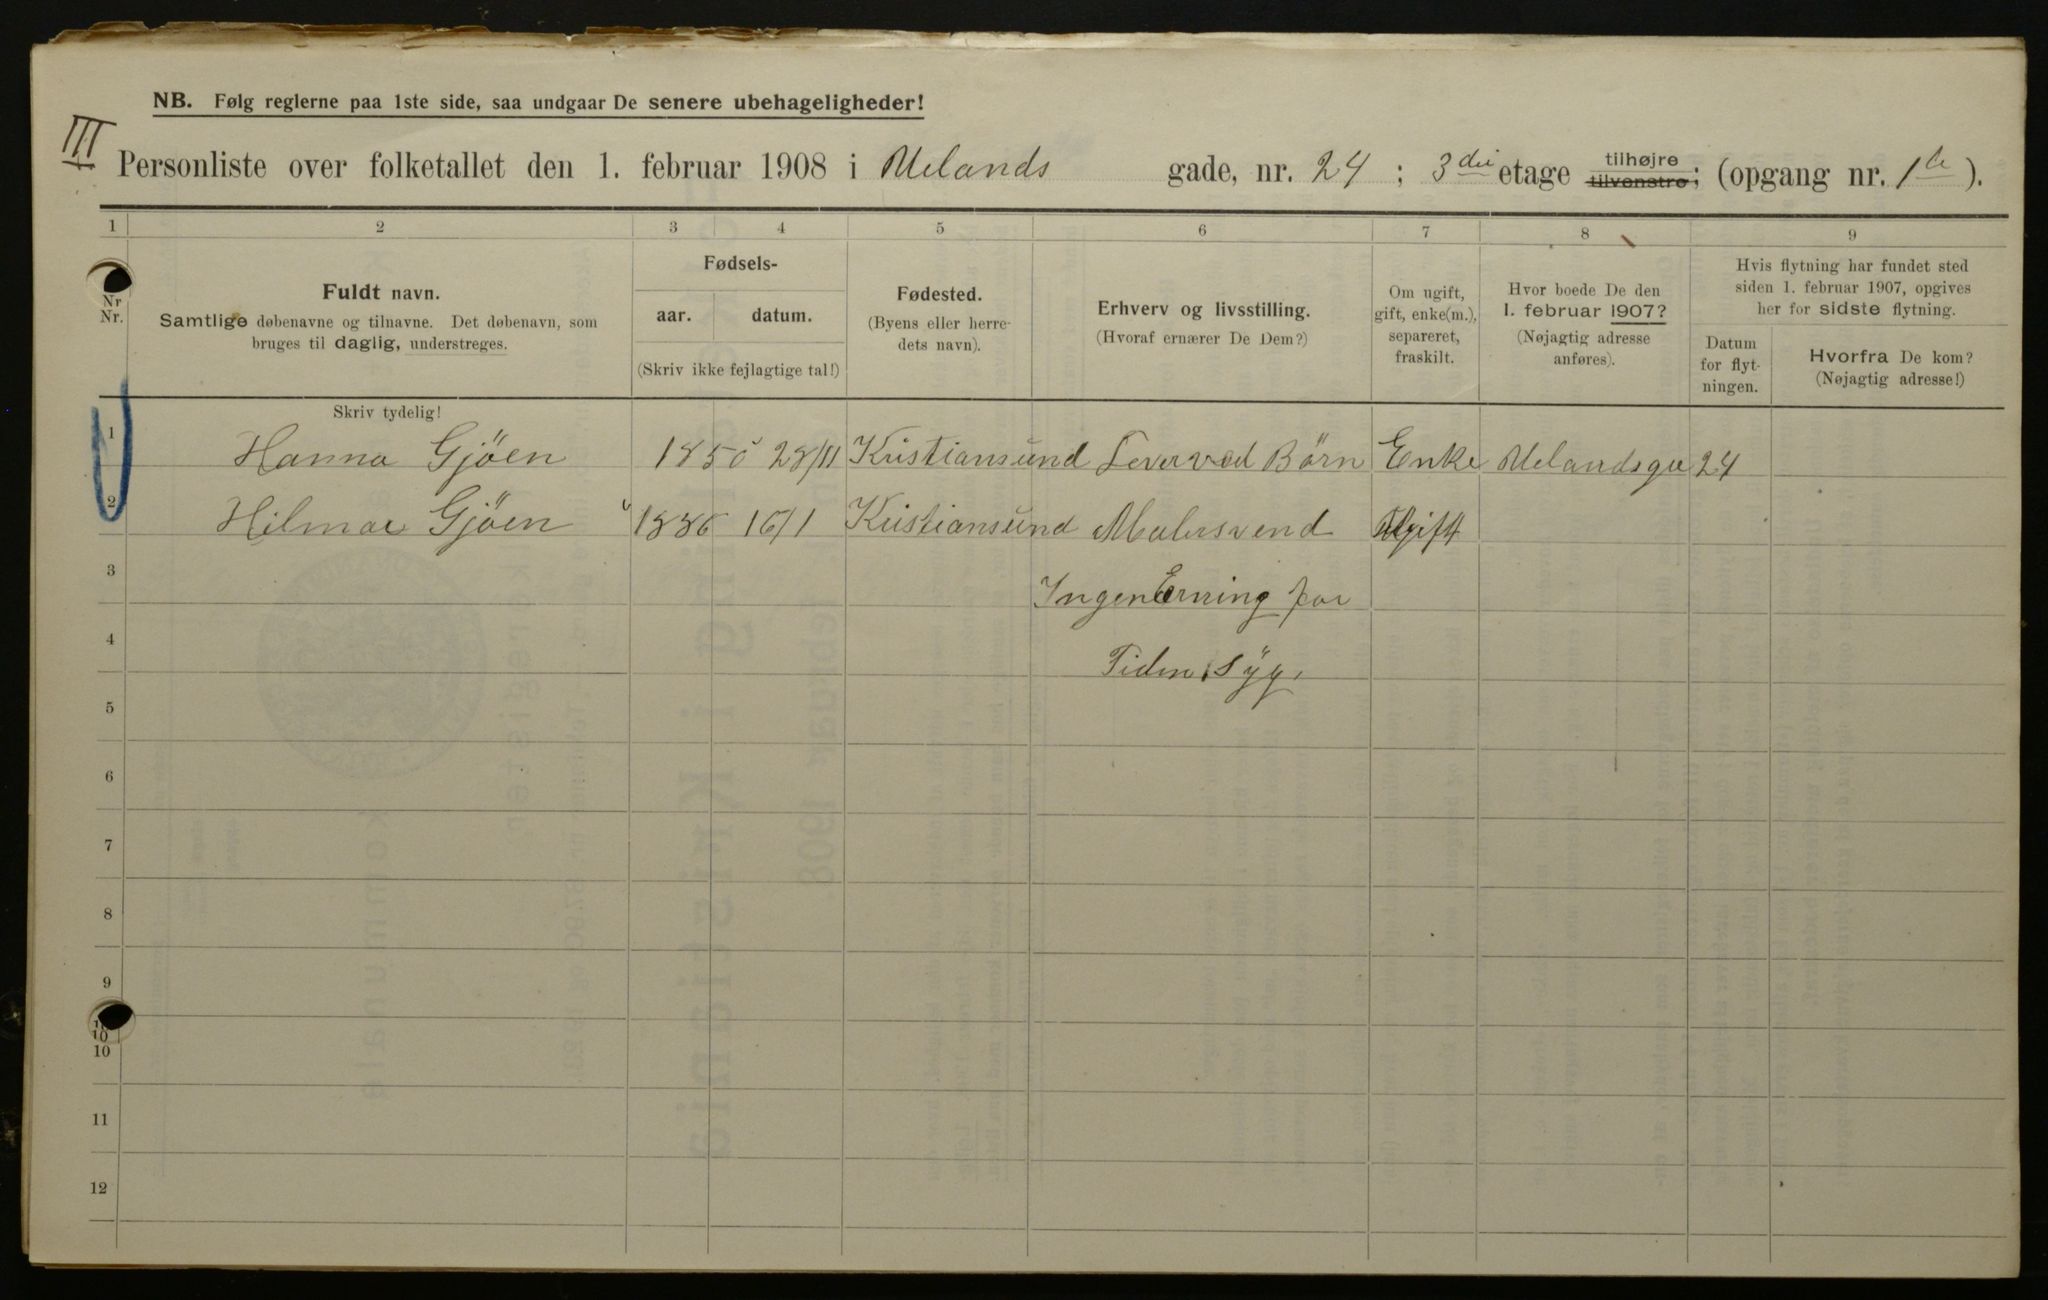 NB. Følg reglerne paa 1ste side, saa undgaar De senere ubehageligheder!
III
Personliste over folketallet den 1. februar 1908 i Uelands gade, nr. 24; 3die etage tilhøjre tilvenstre; (opgang nr. 1te).
1 2 3 4 5 6 7 8 9
Nr. Nr.
Fuldt navn.
Samtlige døbenavne og tilnavne. Det døbenavn, som
bruges til daglig, understreges.
Fødsels-
aar. datum.
(Skriv ikke fejlagtige tal!)
Fødested.
(Byens eller herre-
dets navn).
Erhverv og livsstilling.
(Hvoraf ernærer De Dem?)
Om ugift,
gift, enke(m.),
separeret,
fraskilt.
Hvor boede De den
1. februar 1907?
(Nøjagtig adresse
anføres).
Hvis flytning har fundet sted
siden 1. februar 1907, opgives
her for sidste flytning.
Datum
for flyt-
ningen.
Hvorfra De kom?
(Nøjagtig adresse!)
Skriv tydelig!
1 Hanna Gjöen 1850 28/11 Kristiansund Lever ved Börn Enke Uelandsga 24
2 Hilmar Gjöen 1886 16/1 Kristiansund Malersvend Ugift
3 Ingen Erning for
4 Tiden, Syg,
5
6
7
8
9
10
10
11
12